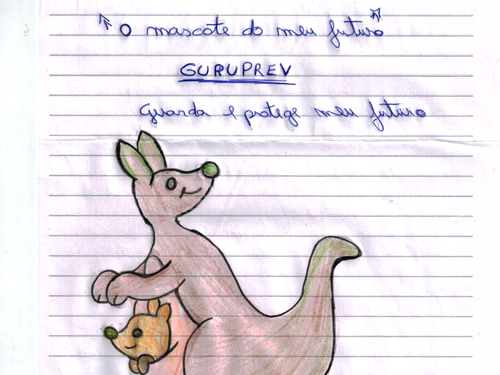 O mascote do meu futuro
GURUPREV
Guarda e protege meu futuro